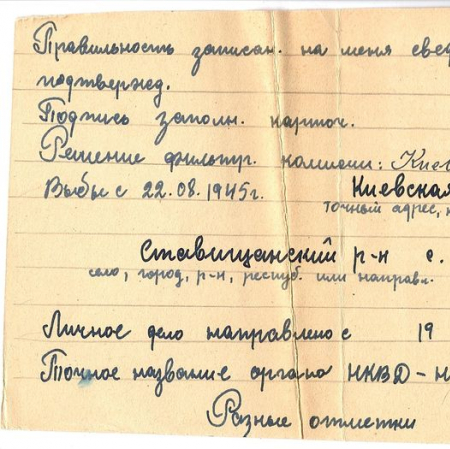 Правильность записан. на меня свед
подтвержд.
Подпись заполн. карточ.
Решение фильтр. комиссии: Киев
Выбыл с 22.08.1945г. Киевская
точный адрес,
Ставищанский р-н с.
село, город, р-н, респуб. или направл.
Личное дело направлено с 19
Точное название органа НКВД-Н
Разные отметки